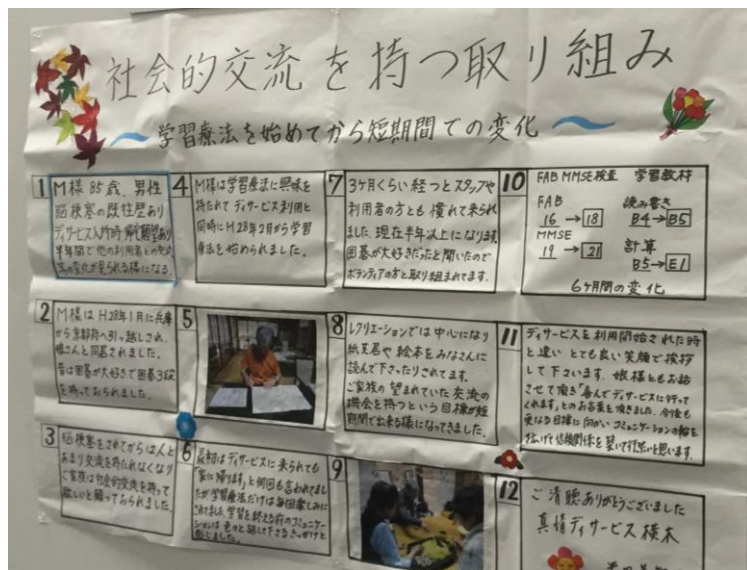 社会的交流を持つ取り組み
学習療法を始めてから短期間での変化
1
M様 85歳、男性
脳梗塞の既往歴あり
デイサービス入所時、帰宅願望あり
半年間で他の利用者との交流
等の変化が見られる様になる。
2
M様はH28年1月に兵庫
から京都府へ引っ越しされ、
娘さんと同居されました。
昔は囲碁が大好きで囲碁3段
を持っておられました。
3
脳梗塞をされてからは人と
あまり交流を持たれなくなり
ご家族は社会的交流を持って
欲しいと願っておられました。
4
M様は学習療法に興味を
持たれてデイサービス利用と
同時にH28年2月から学習
療法を始められました。
5
6
最初はデイサービスに来られても
「家に帰ります」と何回も言われてまし
たが学習療法だけは毎回楽しみに
されてました。学習を終える前のコミュニケー
ションは色々と話して下さるきっかけと
感じました。
7
3ヶ月くらい経つとスタッフや
利用者の方とも慣れて来られ
ました。現在半年以上になります。
囲碁が大好きだったと聞いたので
ボランティアの方と取り組まれてます。
8
レクリエーションでは中心になり
紙芝居や絵本をみなさんに
読んで下さったりされてます。
ご家族の望まれていた交流の
機会を持つという目標が短
期間で出来る様になってきました。
9
10
FAB MMSE検査 学習教材
FAB 読み書き
16 → 18 B4 → B5
MMSE 計算
19 → 21 B5 → E1
6ヶ月間の変化
11
デイサービスを利用開始された時
と違い とても良い笑顔で挨拶
して下さいます。娘様ともお話
させて頂き「喜んでデイサービスに行って
くれます」とのお言葉を頂きました。今後も
更なる目標に向かい コミュニケーションの輪を
拡げて信頼関係を築いて行きたいと思います。
12
ご清聴ありがとうございました
真情デイサービス積木